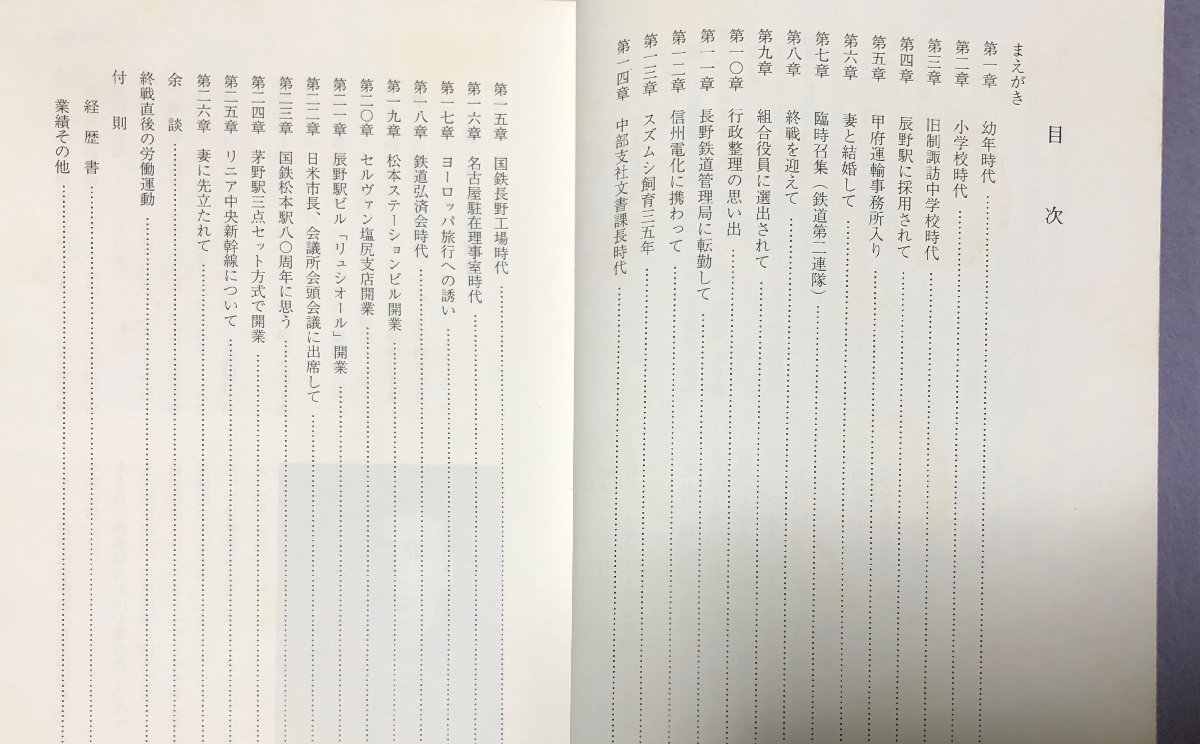 目次
まえがき
第一章 幼年時代
第二章 小学校時代
第三章 旧制諏訪中学校時代
第四章 辰野駅に採用されて
第五章 甲府運輸事務所入り
第六章 妻と結婚して
第七章 臨時召集（鉄道第二連隊）
第八章 終戦を迎えて
第九章 組合役員に選出されて
第一〇章 行政整理の思い出
第一一章 長野鉄道管理局に転勤して
第一二章 信州電化に携わって
第一三章 スズムシ飼育三五年
第一四章 中部支社文書課長時代
第一五章 国鉄長野工場時代
第一六章 名古屋駐在理事室時代
第一七章 ヨーロッパ旅行への誘い
第一八章 鉄道弘済会時代
第一九章 松本ステーションビル開業
第二〇章 セルヴァン塩尻支店開業
第二一章 辰野駅ビル「リュシオール」開業
第二二章 日米市長、会議所会頭会議に出席して
第二三章 国鉄松本駅八〇周年に思う
第二四章 茅野駅三点セット方式で開業
第二五章 リニア中央新幹線について
第二六章 妻に先立たれて
余談
終戦直後の労働運動
付則
経歴書
業績その他